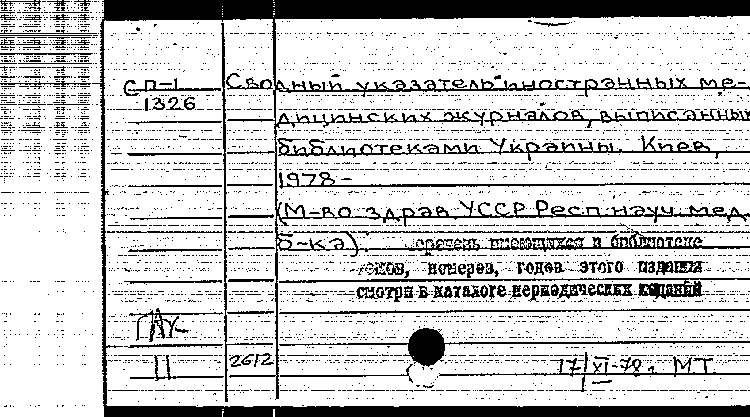 С П-1
1326
Сводный указатель иностранных ме-
дицинских журналов, выписанных
библиотеками Украины. Киев,
1978-
(М-во здрав. УССР. Респ. науч. мед.
б-ка).
перечень имеющихся в библиотеке
томов, номеров, годов этого издания
смотри в каталоге периодических изданий
II
2612
17/XI-78г. МТ.